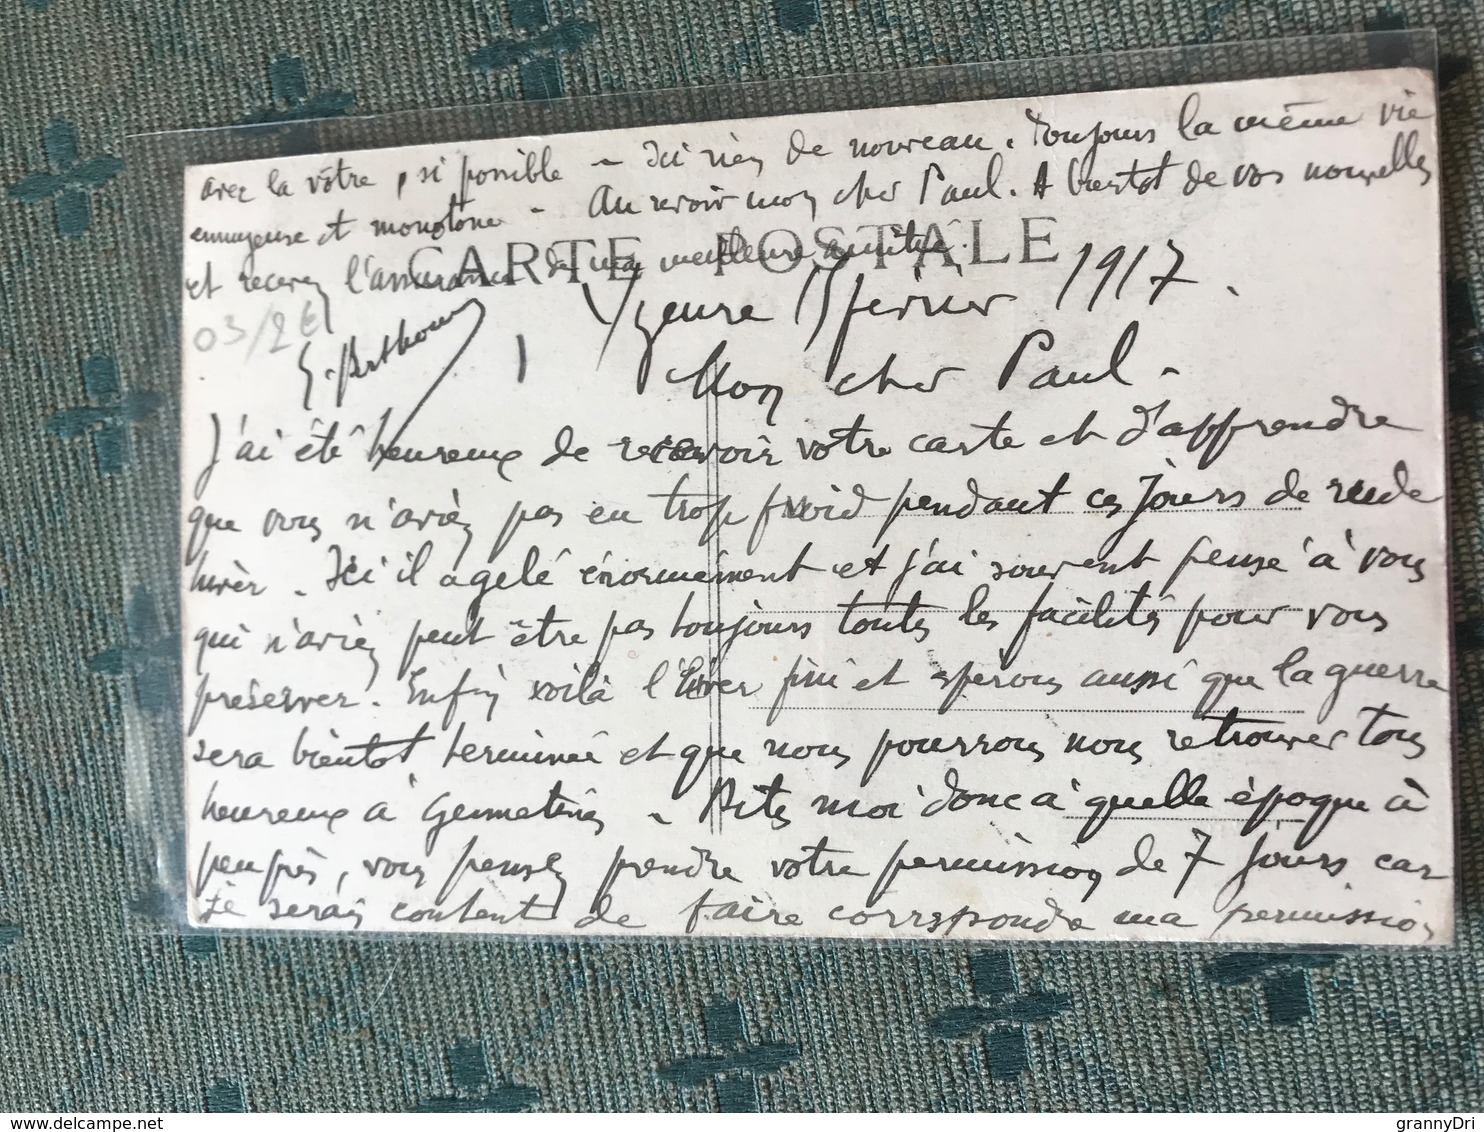 avec la vôtre, si possible - Ici rien de nouveau. Toujours la même vie
ennuyeuse et monotone - Au revoir mon cher Paul. A bientot de vos nouvelles
et recevez l'assurance de ma meilleure amitié.
CARTE POSTALE
03/2€
Yzeure 15 février 1917.
Mon cher Paul.
J'ai été heureux de recevoir votre carte et d'apprendre
que vous n'aviez pas eu trop froid pendant ces jours de rude
hiver. Ici il a gelé énormément et j'ai souvent pensé à vous
qui n'aviez peut être pas toujours toutes les facilités pour vous
préserver. Enfin voilà l'hiver fini et espérons aussi que la guerre
sera bientot terminée et que nous pourrons nous retrouver tous
heureux à - Dites moi donc à quelle époque à
peu près, vous pensez prendre votre permission de 7 jours car
je serais content de faire correspondre ma permission
grannyDri
delcampe.net